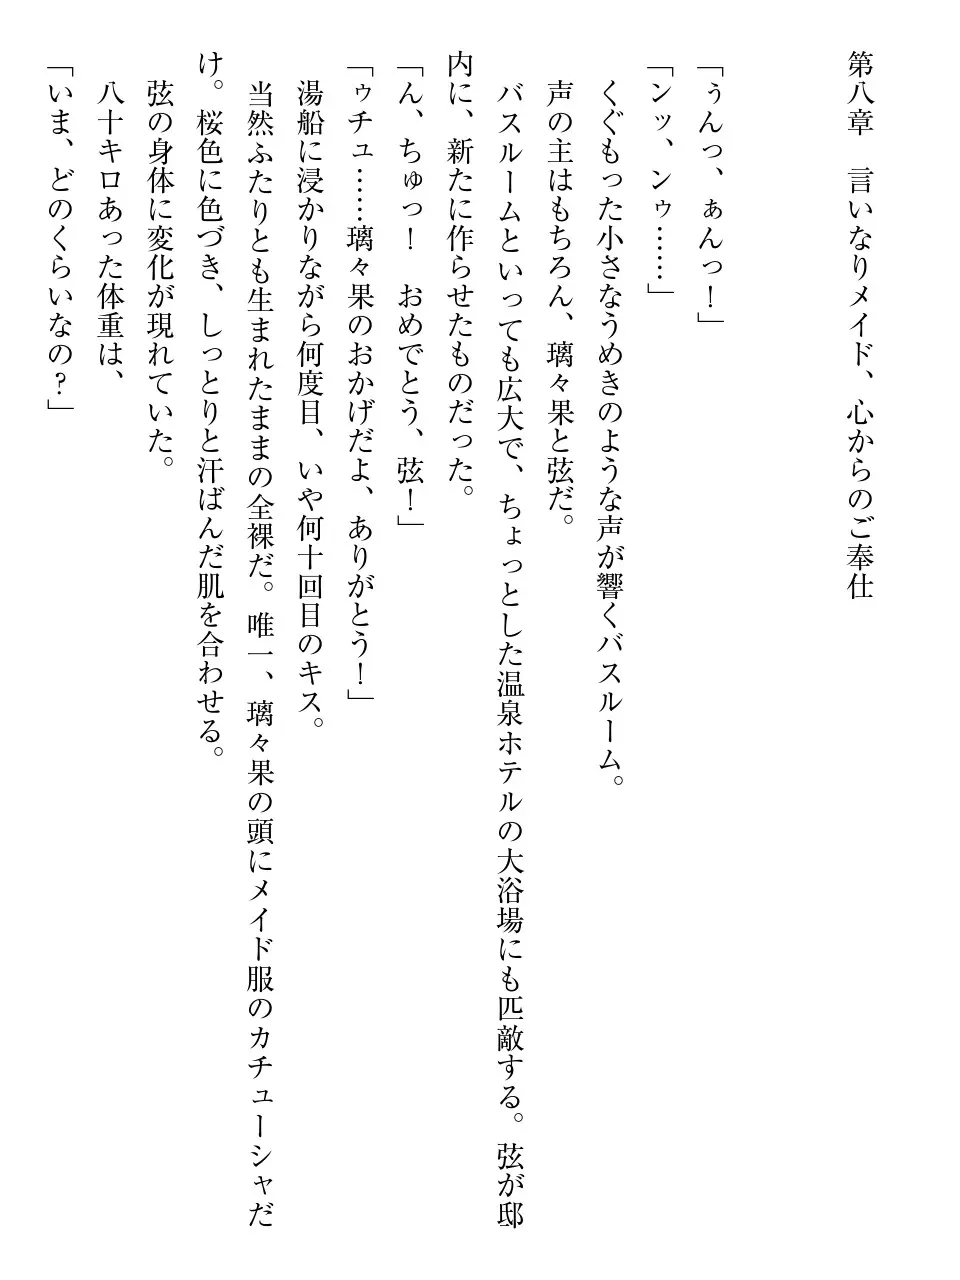 第八章　言いなりメイド、心からのご奉仕
「ぅんっ、ぁんっ！」
「ンッ、ンゥ……」
くぐもった小さなうめきのような声が響くバスルーム。
声の主はもちろん、璃々果と弦だ。
バスルームといっても広大で、ちょっとした温泉ホテルの大浴場にも匹敵する。弦が邸
内に、新たに作らせたものだった。
「ん、ちゅっ！　おめでとう、弦！」
「ゥチュ……璃々果のおかげだよ、ありがとう！」
湯船に浸かりながら何度目、いや何十回目のキス。
当然ふたりとも生まれたままの全裸だ。唯一、璃々果の頭にメイド服のカチューシャだ
け。桜色に色づき、しっとりと汗ばんだ肌を合わせる。
弦の身体に変化が現れていた。
八十キロあった体重は、
「いま、どのくらいなの？」